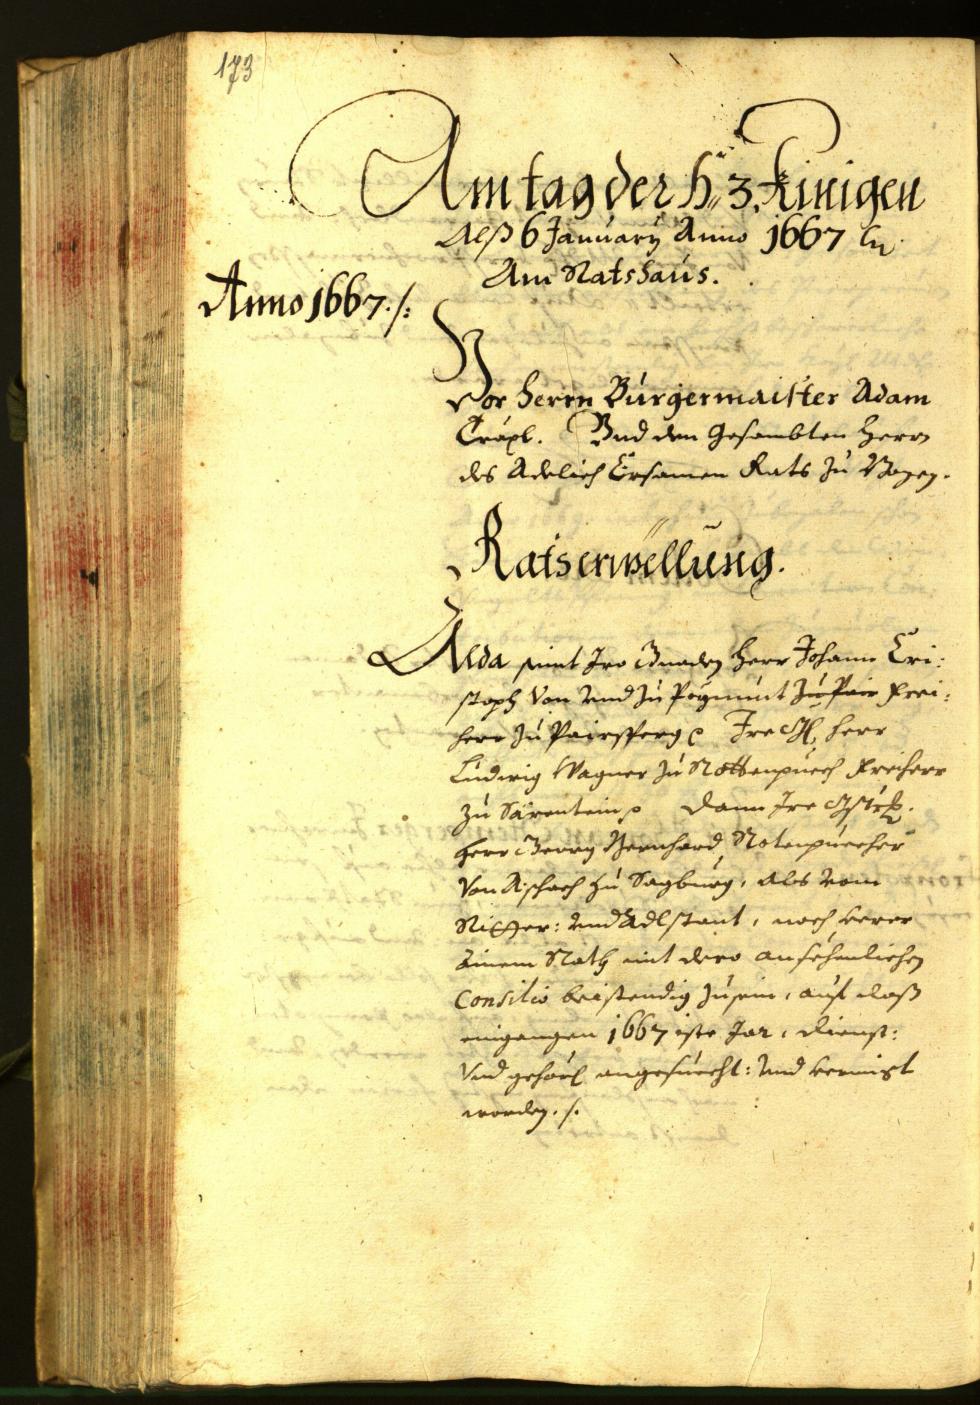 173
Am tag der h: 3. Kinigen
Alß 6 January Anno 1667
Am Ratshaus.
Anno 1667 ./:
Vor Herrn Burgermaister Adam
Träxl. Vnd den Gesambten Herrn
des Adelich Ersamen Rats zu Bozen.
Ratserwellung.
Alda seint Iro Gnaden Herr Johann Cri-
stoph von vnd zu Pögmunt zu Pair Frei-
herr zu Pairsperg Ire Herr
Ludwig Wagner zu Rottenpuech Freiherr
zu Särentein, dann Ire
Herr Georg Bernhard Rotenpuecher
von Aschach zu Sagburg, als vom
Ritter: vnd Adlstant, nach herer
einem Rath mit dero ansehenlichen
Consilio beistendig zu sein, auf das
eingangen 1667 iste Jar, dienst:
vnd gehörl angesuecht: vnd
worden ./.